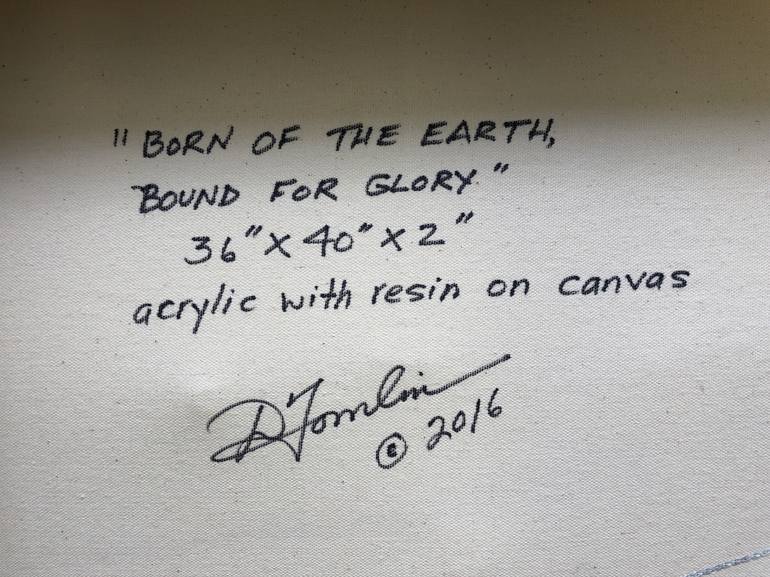 "BORN OF THE EARTH,
BOUND FOR GLORY."
36" x 40" x 2"
acrylic with resin on canvas
DTomlin
© 2016